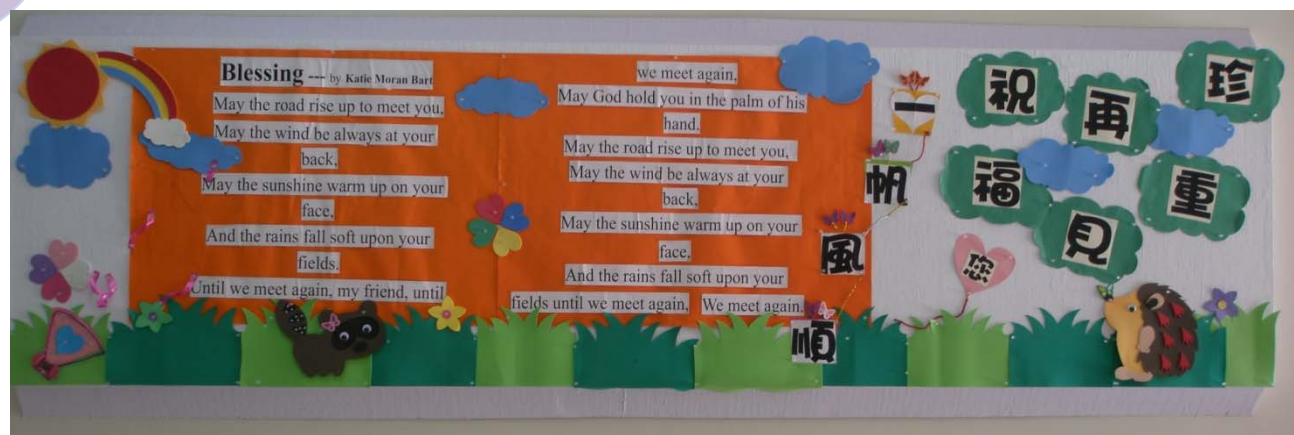 Blessing --- by Katie Moran Bart
May the road rise up to meet you,
May the wind be always at your
back,
May the sunshine warm up on your
face,
And the rains fall soft upon your
fields.
Until we meet again, my friend, until
we meet again,
May God hold you in the palm of his
hand.
May the road rise up to meet you,
May the wind be always at your
back,
May the sunshine warm up on your
face,
And the rains fall soft upon your
fields until we meet again, We meet again.
一帆風順
珍重
再見
祝福
您